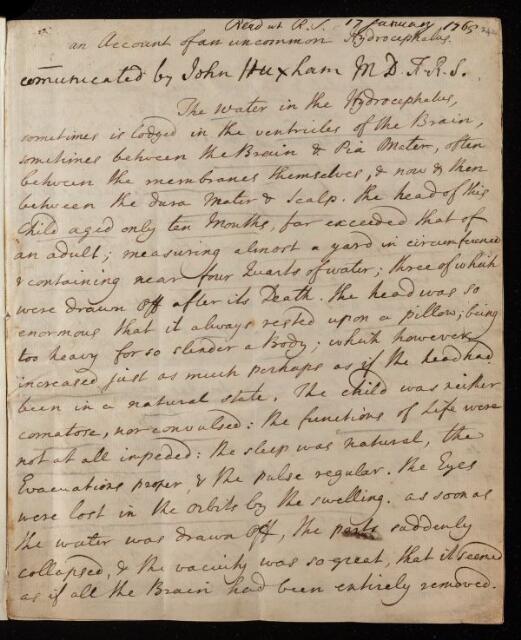 Read at R.S. 17 January 1765
an Account of an uncommon Hydrocephalus.
com̄unicated by John Huxham M D. F.R.S.
The water in the Hydrocephalus,
sometimes is lodged in the ventricles of the Brain,
somtimes between the Brain & Pia Mater, often
between the membranes themselves, & now & then
between the dura Mater & Scalp. The head of this
Child aged only ten Months, far exceeded that of
an adult; measuring almost a yard in circumference
& containing near four Quarts of water; three of which
were drawn off after its Death. The head was so
enormous that it always rested upon a pillow; being
too heavy for so slender a Body; which however
increased just as much perhaps as if the head had
been in a natural state. The child was neither
comatose, nor convulsed: the functions of Life were
not at all impeded: the sleep was natural, the
Evacuations proper, & the pulse regular. The Eyes
were lost in the orbits by the swelling. as soon as
the water was drawn off, the parts suddenly
collapsed, & the vacuity was so great, that it seemed
as if all the Brain had been entirely removed.